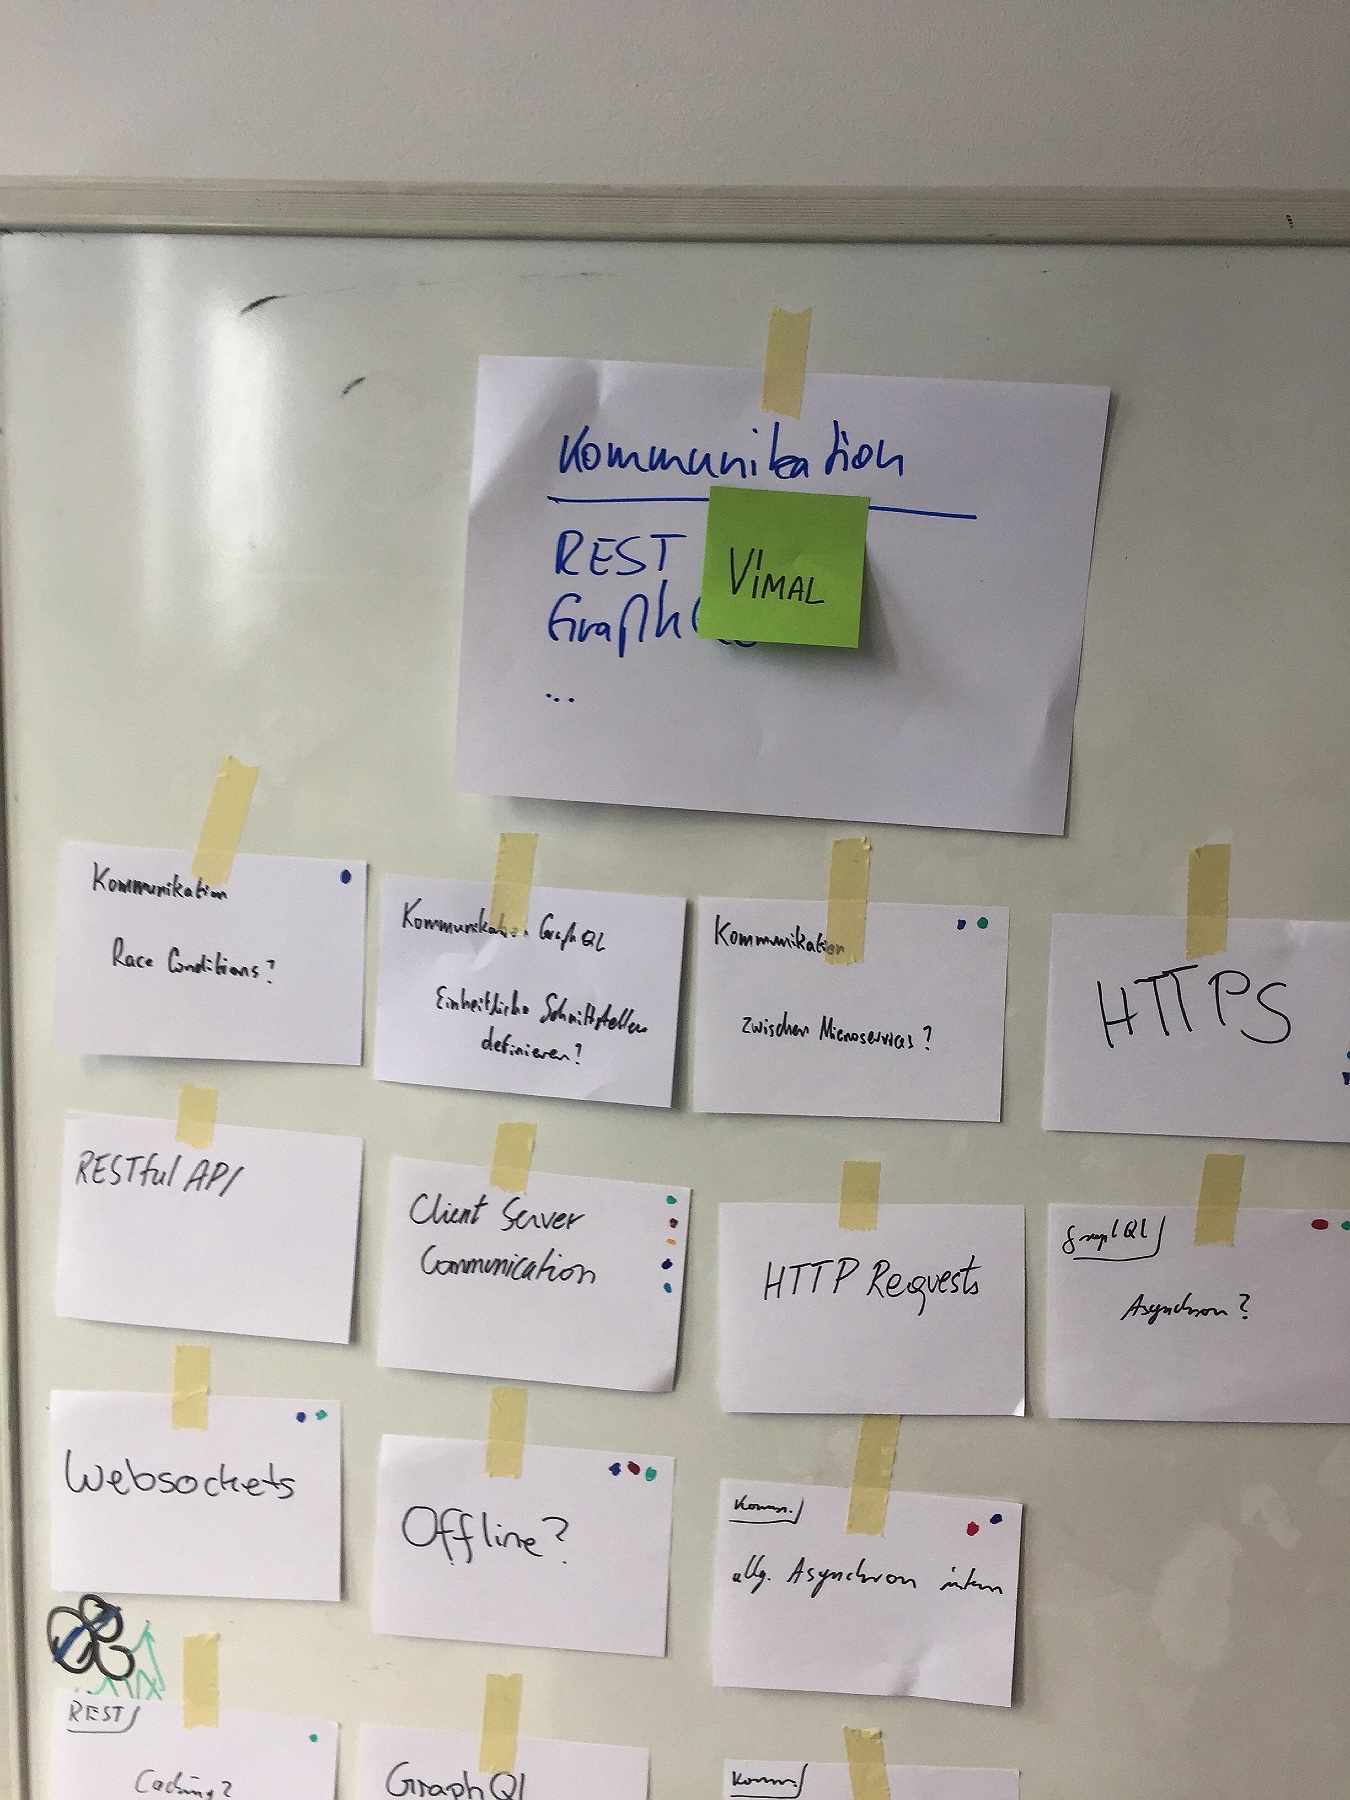 Kommunikation
REST
Graph
VIMAL
...
Kommunikation
Race Conditions?
Kommunikation GraphQL
Einheitliche Schnittstellen
definieren?
Kommunikation
zwischen Microservices?
HTTPS
RESTful API
Client Server
Communication
HTTP Requests
GraphQL
Asynchron?
Websockets
Offline?
Komm.
allg. Asynchron intern
REST
Caching?
GraphQl
Komm.